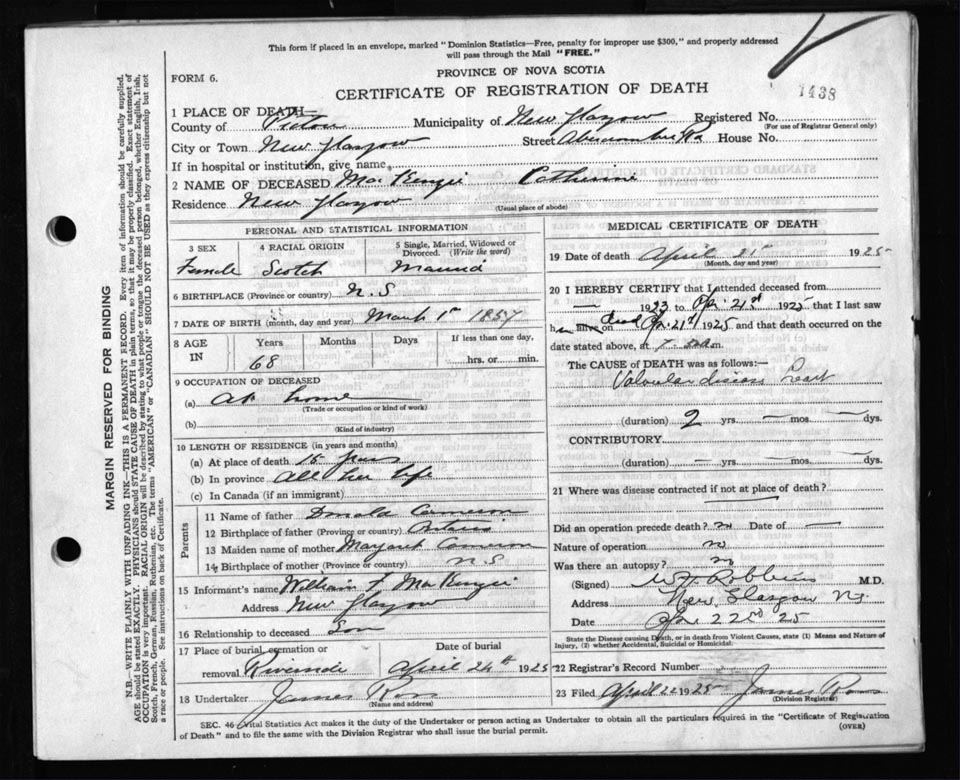 This form if placed in an envelope, marked "Dominion Statistics—Free, penalty for improper use $300," and properly addressed
will pass through the Mail "FREE."
PROVINCE OF NOVA SCOTIA
FORM 6.
CERTIFICATE OF REGISTRATION OF DEATH
1438
1 PLACE OF DEATH—
County of Pictou Municipality of New Glasgow Registered No.
(For use of Registrar General only)
City or Town New Glasgow Street Abercrombie Rd House No.
If in hospital or institution, give name
2 NAME OF DECEASED MacKenzie Catherine
Residence New Glasgow
(Usual place of abode)
PERSONAL AND STATISTICAL INFORMATION
3 SEX 4 RACIAL ORIGIN 5 Single, Married, Widowed or Divorced. (Write the word)
Female Scotch Married
6 BIRTHPLACE (Province or country) N.S
7 DATE OF BIRTH (month, day and year) March 1st 1857
8 AGE IN Years Months Days If less than one day,
68 hrs. or min.
9 OCCUPATION OF DECEASED
(a) At home
(Trade or occupation or kind of work)
(b)
(Kind of industry)
10 LENGTH OF RESIDENCE (in years and months)
(a) At place of death 15 years
(b) In province All her life
(c) In Canada (if an immigrant)
Parents
11 Name of father Donald Cameron
12 Birthplace of father (Province or country)
13 Maiden name of mother Margaret Cameron
14 Birthplace of mother (Province or country) N.S
15 Informant's name William F MacKenzie
Address New Glasgow
16 Relationship to deceased Son
17 Place of burial, cremation or removal Date of burial
Riverside April 24th 1925
18 Undertaker James Ross
(Name and address)
MEDICAL CERTIFICATE OF DEATH
19 Date of death April 21 1925
(Month, day and year)
20 I HEREBY CERTIFY that I attended deceased from
— 1923 to Apr. 21st 1925 that I last saw
h alive on dead Apr. 21st 1925 and that death occurred on the
date stated above, at 7 m.
The CAUSE OF DEATH was as follows:—
Valvular disease heart
(duration) 2 yrs. — mos. — dys.
CONTRIBUTORY
(duration) — yrs. — mos. — dys.
21 Where was disease contracted if not at place of death?
—
Did an operation precede death? no Date of —
Nature of operation no
Was there an autopsy? no
(Signed) Robbins M.D.
Address New Glasgow NS.
Date Apr 22nd 25
State the Disease causing Death, or in death from Violent Causes, state (1) Means and Nature of
Injury, (2) whether Accidental, Suicidal or Homicidal.
22 Registrar's Record Number
23 Filed April 22 1925 James Ross
(Division Registrar)
SEC. 46 Vital Statistics Act makes it the duty of the Undertaker or person acting as Undertaker to obtain all the particulars required in the "Certificate of Registration
of Death" and to file the same with the Division Registrar who shall issue the burial permit. (OVER)
MARGIN RESERVED FOR BINDING
N.B.—WRITE PLAINLY WITH UNFADING INK—THIS IS A PERMANENT RECORD. Every item of information should be carefully supplied.
AGE should be stated EXACTLY. PHYSICIANS should STATE CAUSE OF DEATH in plain terms, so that it may be properly classified. Exact statement of
OCCUPATION is very important. RACIAL ORIGIN will be described by stating to what people or tongue the deceased person belonged, whether English, Irish,
Scotch, French, German, Russian, Ruthenian, etc. The terms "AMERICAN" or "CANADIAN" SHOULD NOT BE USED as they express citizenship but not
a race or people. See instructions on back of Certificate.